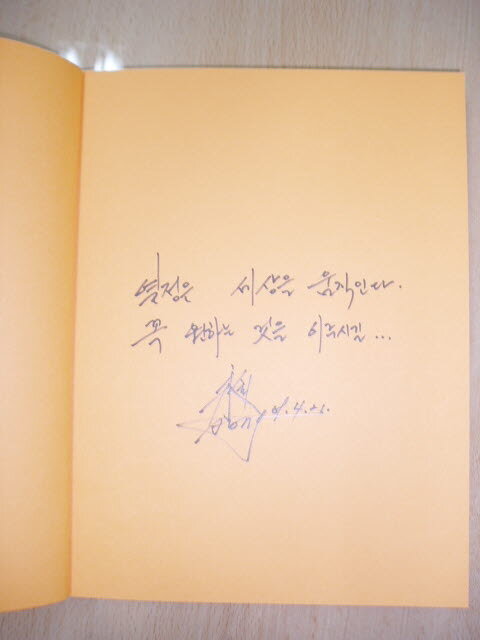 열정은 세상을 움직인다.
꼭 원하는 것을 이루시길...